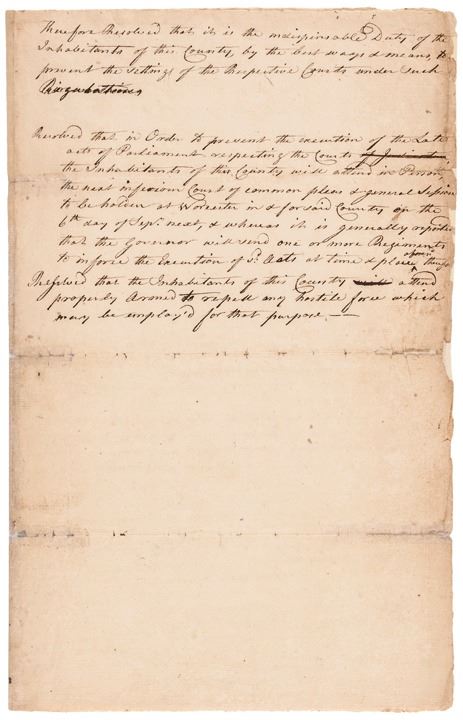 Therefore Resolved that it is the indispensable Duty of the
Inhabitants of this County, by the best ways & means, to
prevent the setting of the Respective Courts under such
Regulations
Resolved that in Order to prevent the execution of the Late
acts of Parliament respecting the Courts
the Inhabitants of this County will attend in Person,
the next inferiour Court of common pleas & general Sessions
to be holden at Worcester in & for said County on the
6th day of Sepr. next, & whereas it is generally reported
that the Governor will send one or more Regiments
to inforce the Execution of sd. Acts at time & place
Resolved that the Inhabitants of this County attend
properly Armed to repell any hostile force which
may be employ'd for that purpose.—